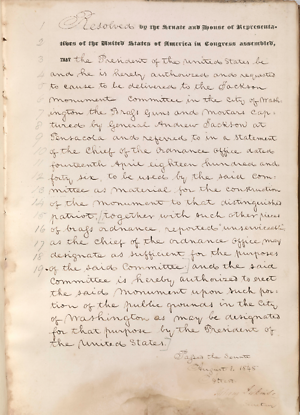 1 Resolved by the Senate and House of Representa-
2 tives of the United States of America in Congress assembled,
3 THAT the President of the United States be
4 and he is hereby authorized and requested
5 to cause to be delivered to the Jackson
6 Monument Committee in the City of Wash
7 ington the Brass Guns and Mortars Cap-
8 tured by General Andrew Jackson at
9 Pensacola and referred to in a Statement
10 of the Chief of the Ordnance Office dated
11 fourteenth April eighteen hundred and
12 forty six, to be used by the said com-
13 mittee as material for the construction
14 of the monument to that distinguished
15 patriot, together with such other pieces
16 of brass ordnance reported unserviceable
17 as the Chief of the ordnance office may
18 designate as sufficient for the purposes
19 of the said Committee and the said
Committee is hereby authorized to erect
the said Monument upon such por-
tions of the public grounds in the City
of Washington as may be designated
for that purpose by the President of
the United States.
Passed the Senate
August